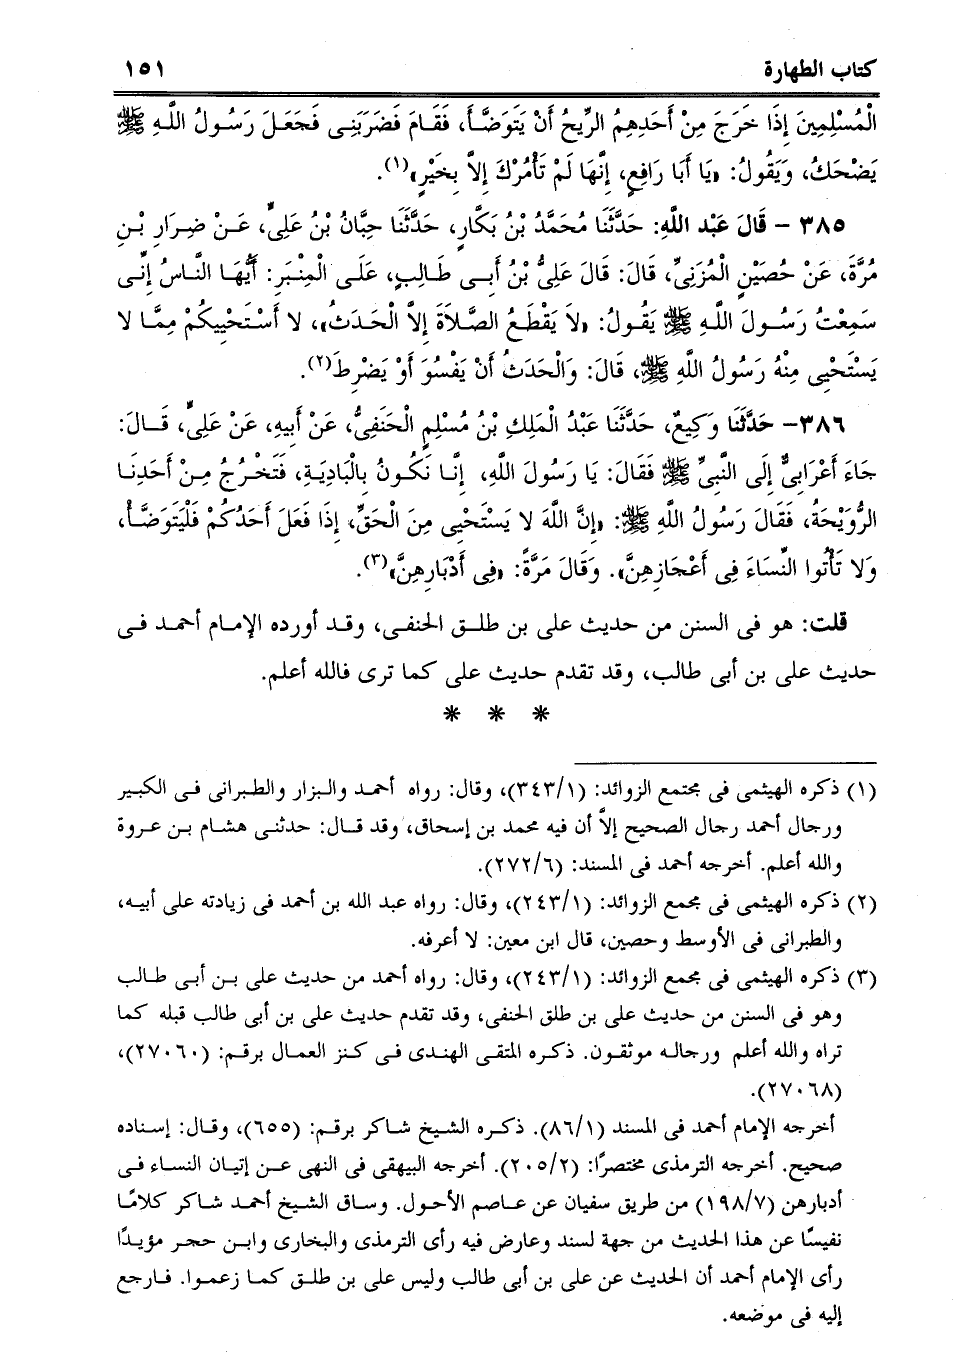 كتاب الطهارة ١٥١
الْمُسْلِمِينَ إِذَا خَرَجَ مِنْ أَحَدِهِمُ الرِّيحُ أَنْ يَتَوَضَّأَ، فَقَامَ فَضَرَبَنِى فَجَعَلَ رَسُولُ اللَّهِ ﷺ
يَضْحَكُ، وَيَقُولُ: «يَا أَبَا رَافِعٍ، إِنَّهَا لَمْ تَأْمُرْكَ إِلاَّ بِخَيْرٍ»(١).
٣٨٥ – قَالَ عَبْد اللَّهِ: حَدَّثَنَا مُحَمَّدُ بْنُ بَكَّارٍ، حَدَّثَنَا حِبَّانُ بْنُ عَلِىٍّ، عَنْ ضِرَارِ بْنِ
مُرَّةَ، عَنْ حُصَيْنٍ الْمُزَنِىِّ، قَالَ: قَالَ عَلِىُّ بْنُ أَبِى طَالِبٍ، عَلَى الْمِنْبَرِ: أَيُّهَا النَّاسُ إِنِّى
سَمِعْتُ رَسُولَ اللَّهِ ﷺ يَقُولُ: «لاَ يَقْطَعُ الصَّلاَةَ إِلاَّ الْحَدَثُ»، لا أَسْتَحْيِيكُمْ مِمَّا لا
يَسْتَحْيِى مِنْهُ رَسُولُ اللَّهِ ﷺ، قَالَ: وَالْحَدَثُ أَنْ يَفْسُوَ أَوْ يَضْرِطَ(٢).
٣٨٦– حَدَّثَنَا وَكِيعٌ، حَدَّثَنَا عَبْدُ الْمَلِكِ بْنُ مُسْلِمٍ الْحَنَفِىُّ، عَنْ أَبِيهِ، عَنْ عَلِىٍّ، قَالَ:
جَاءَ أَعْرَابِىٌّ إِلَى النَّبِىِّ ﷺ فَقَالَ: يَا رَسُولَ اللَّهِ، إِنَّا نَكُونُ بِالْبَادِيَةِ، فَتَخْرُجُ مِنْ أَحَدِنَا
الرُّوَيْحَةُ، فَقَالَ رَسُولُ اللَّهِ ﷺ: «إِنَّ اللَّهَ لا يَسْتَحْيِى مِنَ الْحَقِّ، إِذَا فَعَلَ أَحَدُكُمْ فَلْيَتَوَضَّأْ،
وَلا تَأْتُوا النِّسَاءَ فِى أَعْجَازِهِنَّ». وَقَالَ مَرَّةً: «فِى أَدْبَارِهِنَّ»(٣).
قلت: هو فى السنن من حديث على بن طلق الحنفى، وقد أورده الإمام أحمد فى
حديث على بن أبى طالب، وقد تقدم حديث على كما ترى فالله أعلم.
* * *
(١) ذكره الهيثمى فى مجتمع الزوائد: (٣٤٣/١)، وقال: رواه أحمد والبزار والطبرانى فى الكبير
ورجال أحمد رجال الصحيح إلاَّ أن فيه محمد بن إسحاق، وقد قال: حدثنى هشام بن عروة
والله أعلم. أخرجه أحمد فى المسند: (٢٧٢/٦).
(٢) ذكره الهيثمى فى مجمع الزوائد: (٢٤٣/١)، وقال: رواه عبد الله بن أحمد فى زيادته على أبيه،
والطبرانى فى الأوسط وحصين، قال ابن معين: لا أعرفه.
(٣) ذكره الهيثمى فى مجمع الزوائد: (٢٤٣/١)، وقال: رواه أحمد من حديث على بن أبى طالب
وهو فى السنن من حديث على بن طلق الحنفى، وقد تقدم حديث على بن أبى طالب قبله كما
تراه والله أعلم ورجاله موثقون. ذكره المتقى الهندى فى كنز العمال برقم: (٢٧٠٦٠)،
(٢٧٠٦٨).
أخرجه الإمام أحمد فى المسند (٨٦/١). ذكره الشيخ شاكر برقم: (٦٥٥)، وقال: إسناده
صحيح. أخرجه الترمذى مختصرًا: (٢٠٥/٢). أخرجه البيهقى فى النهى عن إتيان النساء فى
أدبارهن (١٩٨/٧) من طريق سفيان عن عاصم الأحول. وساق الشيخ أحمد شاكر كلامًا
نفيسًا عن هذا الحديث من جهة لسند وعارض فيه رأى الترمذى والبخارى وابن حجر مؤيدًا
رأى الإمام أحمد أن الحديث عن على بن أبى طالب وليس على بن طلق كما زعموا. فارجع
إليه فى موضعه.